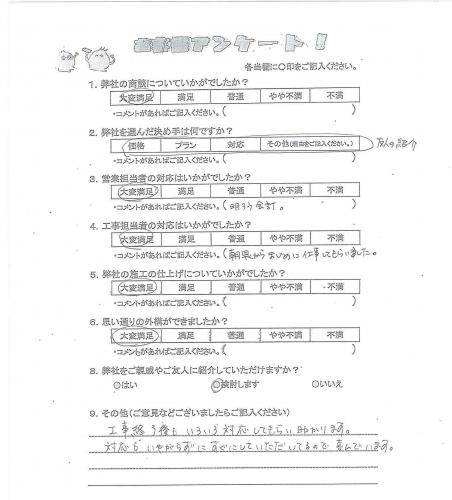 お客様アンケート!
各当欄に○印をご記入ください。
1. 弊社の商談についていかがでしたか?
大変満足 満足 普通 やや不満 不満
・コメントがあればご記入ください。( )
2. 弊社を選んだ決め手は何ですか?
価格 プラン 対応 その他(理由をご記入ください。) 友人の紹介
・コメントがあればご記入ください。( )
3. 営業担当者の対応はいかがでしたか?
大変満足 満足 普通 やや不満 不満
・コメントがあればご記入ください。(明朗会計。 )
4. 工事担当者の対応はいかがでしたか?
大変満足 満足 普通 やや不満 不満
・コメントがあればご記入ください。(朝早くからまじめに仕事してもらいました。
5. 弊社の施工の仕上げについていかがでしたか?
大変満足 満足 普通 やや不満 不満
・コメントがあればご記入ください。( )
6. 思い通りの外構ができましたか?
大変満足 満足 普通 やや不満 不満
・コメントがあればご記入ください。( )
8. 弊社をご親戚やご友人に紹介していただけますか?
○はい ○検討します ○いいえ
9. その他(ご意見などございましたらご記入ください)
工事終了後もいろいろ対応してもらい助かります。
対応もいやがらずにすぐにしていただいてるので喜んでいます。